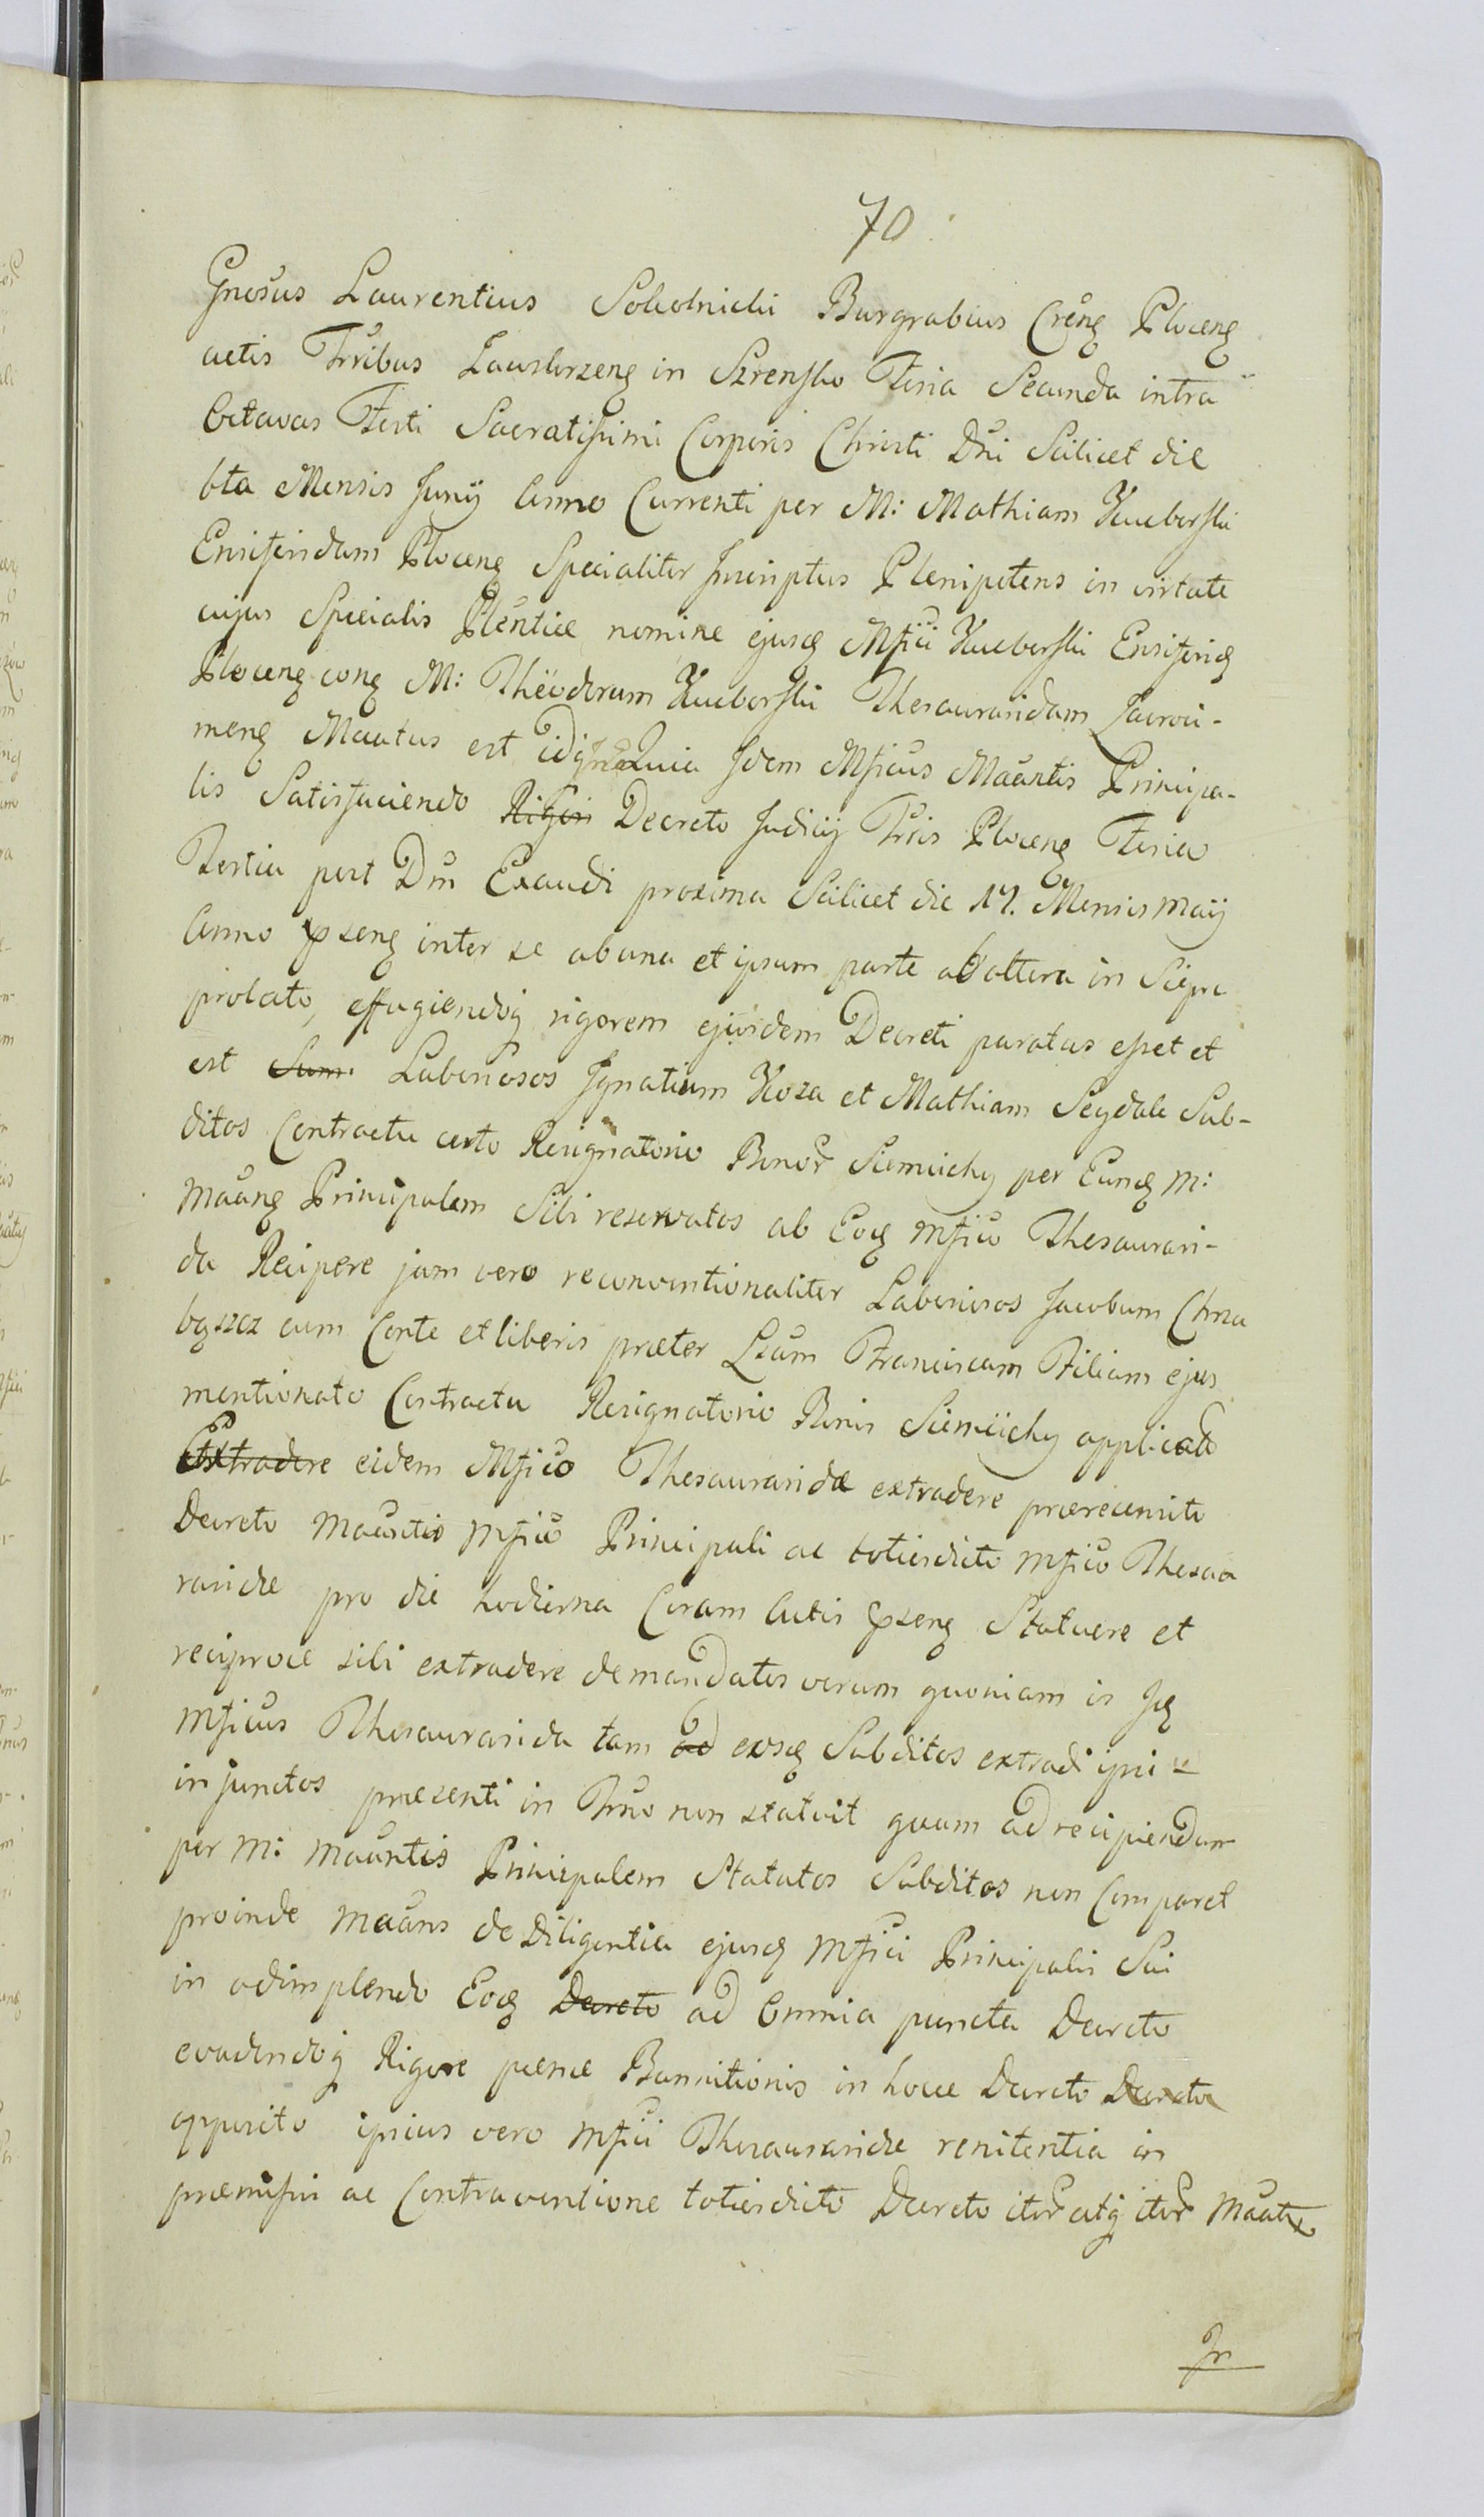 70
Gnosus Laurentius Sokolnicki Burgrabius Crens Plocens
actis Trribus Zawskrzens in Szrensko Feria Secunda intra
Octavas Festi Sacratissimi Corporis Christi Dni Scilicet die
6ta Mensis Junij Anno Currenti per M: Mathiam Kucborski
Ensiferidam Plocens Specialiter Inscriptus Plenipotens in virtute
cujus Specialis Plentiae nomine ejusd Mfici Kucborski Ensiferid
Plocens cong M: Theodorum Kucborski Thesauraridam
mens Mautus est idq Quia Idem Mficus Mauntis Principa-
lis Satisfaciendo Rigori Decreto Judicij Trris Plocens Feria
Tertia post Dm Exaudi proxima Scilicet die 17. Mensis Maij
Anno pszens inter se ab una et ipsum parte ab altera in
prolato, effugiendoq rigorem ejusdem Decreti paratus esset et
est Sum. Laboriosos Ignatium Koza et Mathiam Seydak Sub-
ditos Contractu certo Resignatorio Bonor Siemiichy per Eund M:
Maung Principalem Sibi reservatos ab Eod Mfico Thesaurari-
da Recipere jam vero reconventionaliter Laboriosos Jacobum Chrza
bąszcz cum Conte et liberis praeter Lsam Franciscam Filiam ejus
mentionato Contractu Resignatorio Bonis Siemiichy applicato
Extradere eidem Mfico Thesauraridae extradere praerecensito
Decreto Mauntis Mfico Principali ac totiesdicto Mfico Thesau
raridae pro die hodierna Coram Actis pszens Statuere et
reciproce sibi extradere demandatos verum quoniam is Id
Mficus Thesaurarida tam ad eosd Subditos extradi ipsi
injunctos praesenti in Trno non statuit quam ad recipiendum
per M: Mauntis Principalem Statutos Subditos non Comparet
proinde Mauns de Diligentia ejusd Mfici Principalis Sui
in adimplendo Eod Decreto ad Omnia puncta Decreto
evadendoq Rigore paenae Bannitionis in hocce Decreto Decreto
apposito ipsius vero Mfici Thesauraridae renitentia in
praemissis ac Contraventione totiesdicto Decreto iter atq iter Mautr
In